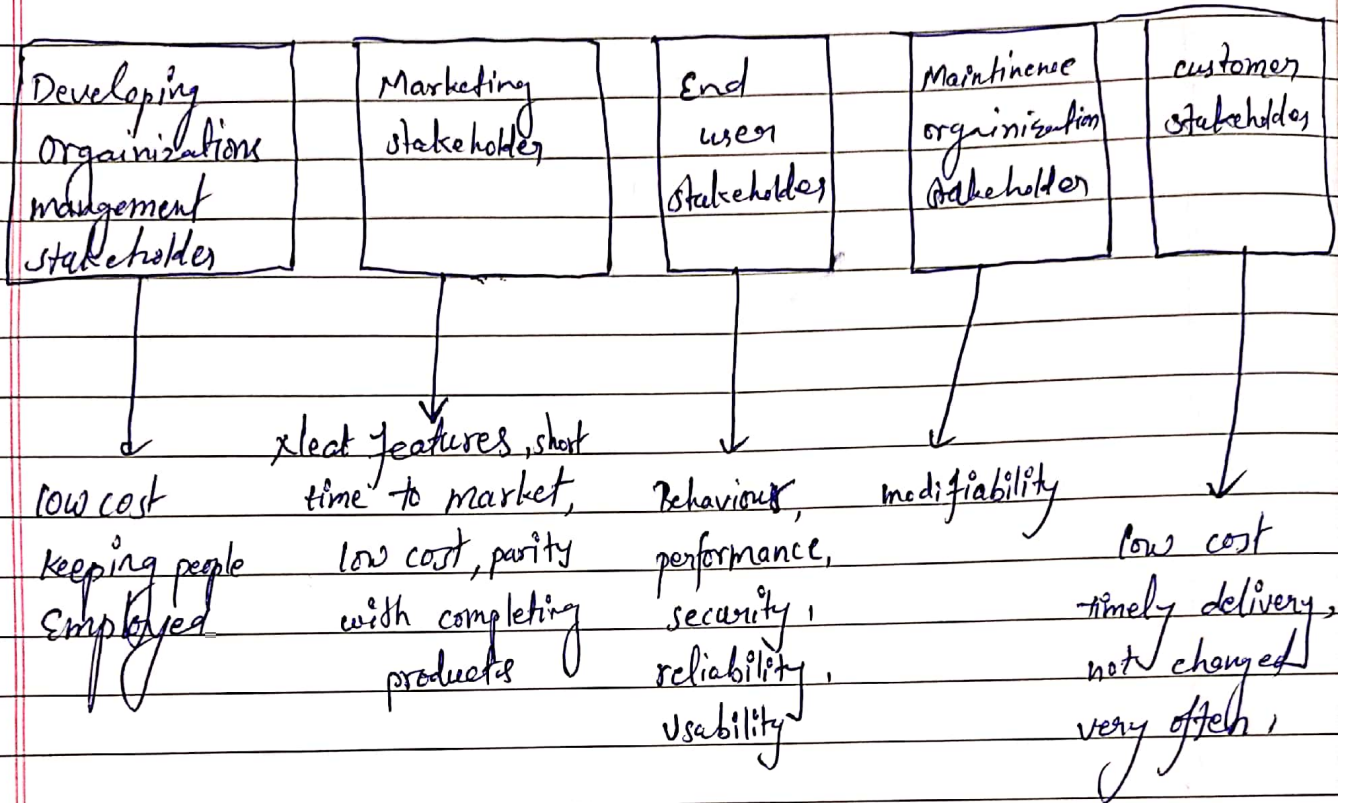 Developing
orgainizations
mangement
stakeholder
Marketing
stakeholder
End
user
stakeholder
Maintinense
orgainisation
stakeholder
customer
stakeholder
low cost
keeping people
Employed
features, short
time to market,
low cost, parity
with completing
products
Behaviour,
performance,
security,
reliability,
Usability
modifiability
low cost
timely delivery,
not changed
very often,